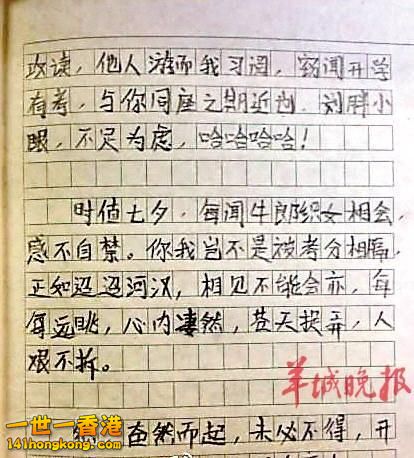 攻读，他人游而我习阅，窃闻开学
有考，与你同座之期近也，刘胖小
眼，不足为虑，哈哈哈哈！
时值七夕，每闻牛郎织女相会，
感不自禁。你我岂不是被考分相隔，
正如迢迢河汉，相见不能会亦，每
每远眺，心内凄然，苍天捉弄，人
艰不拆。
羊城晚报
奋然而起，未必不得，开
一世一香港
141hongkong.com